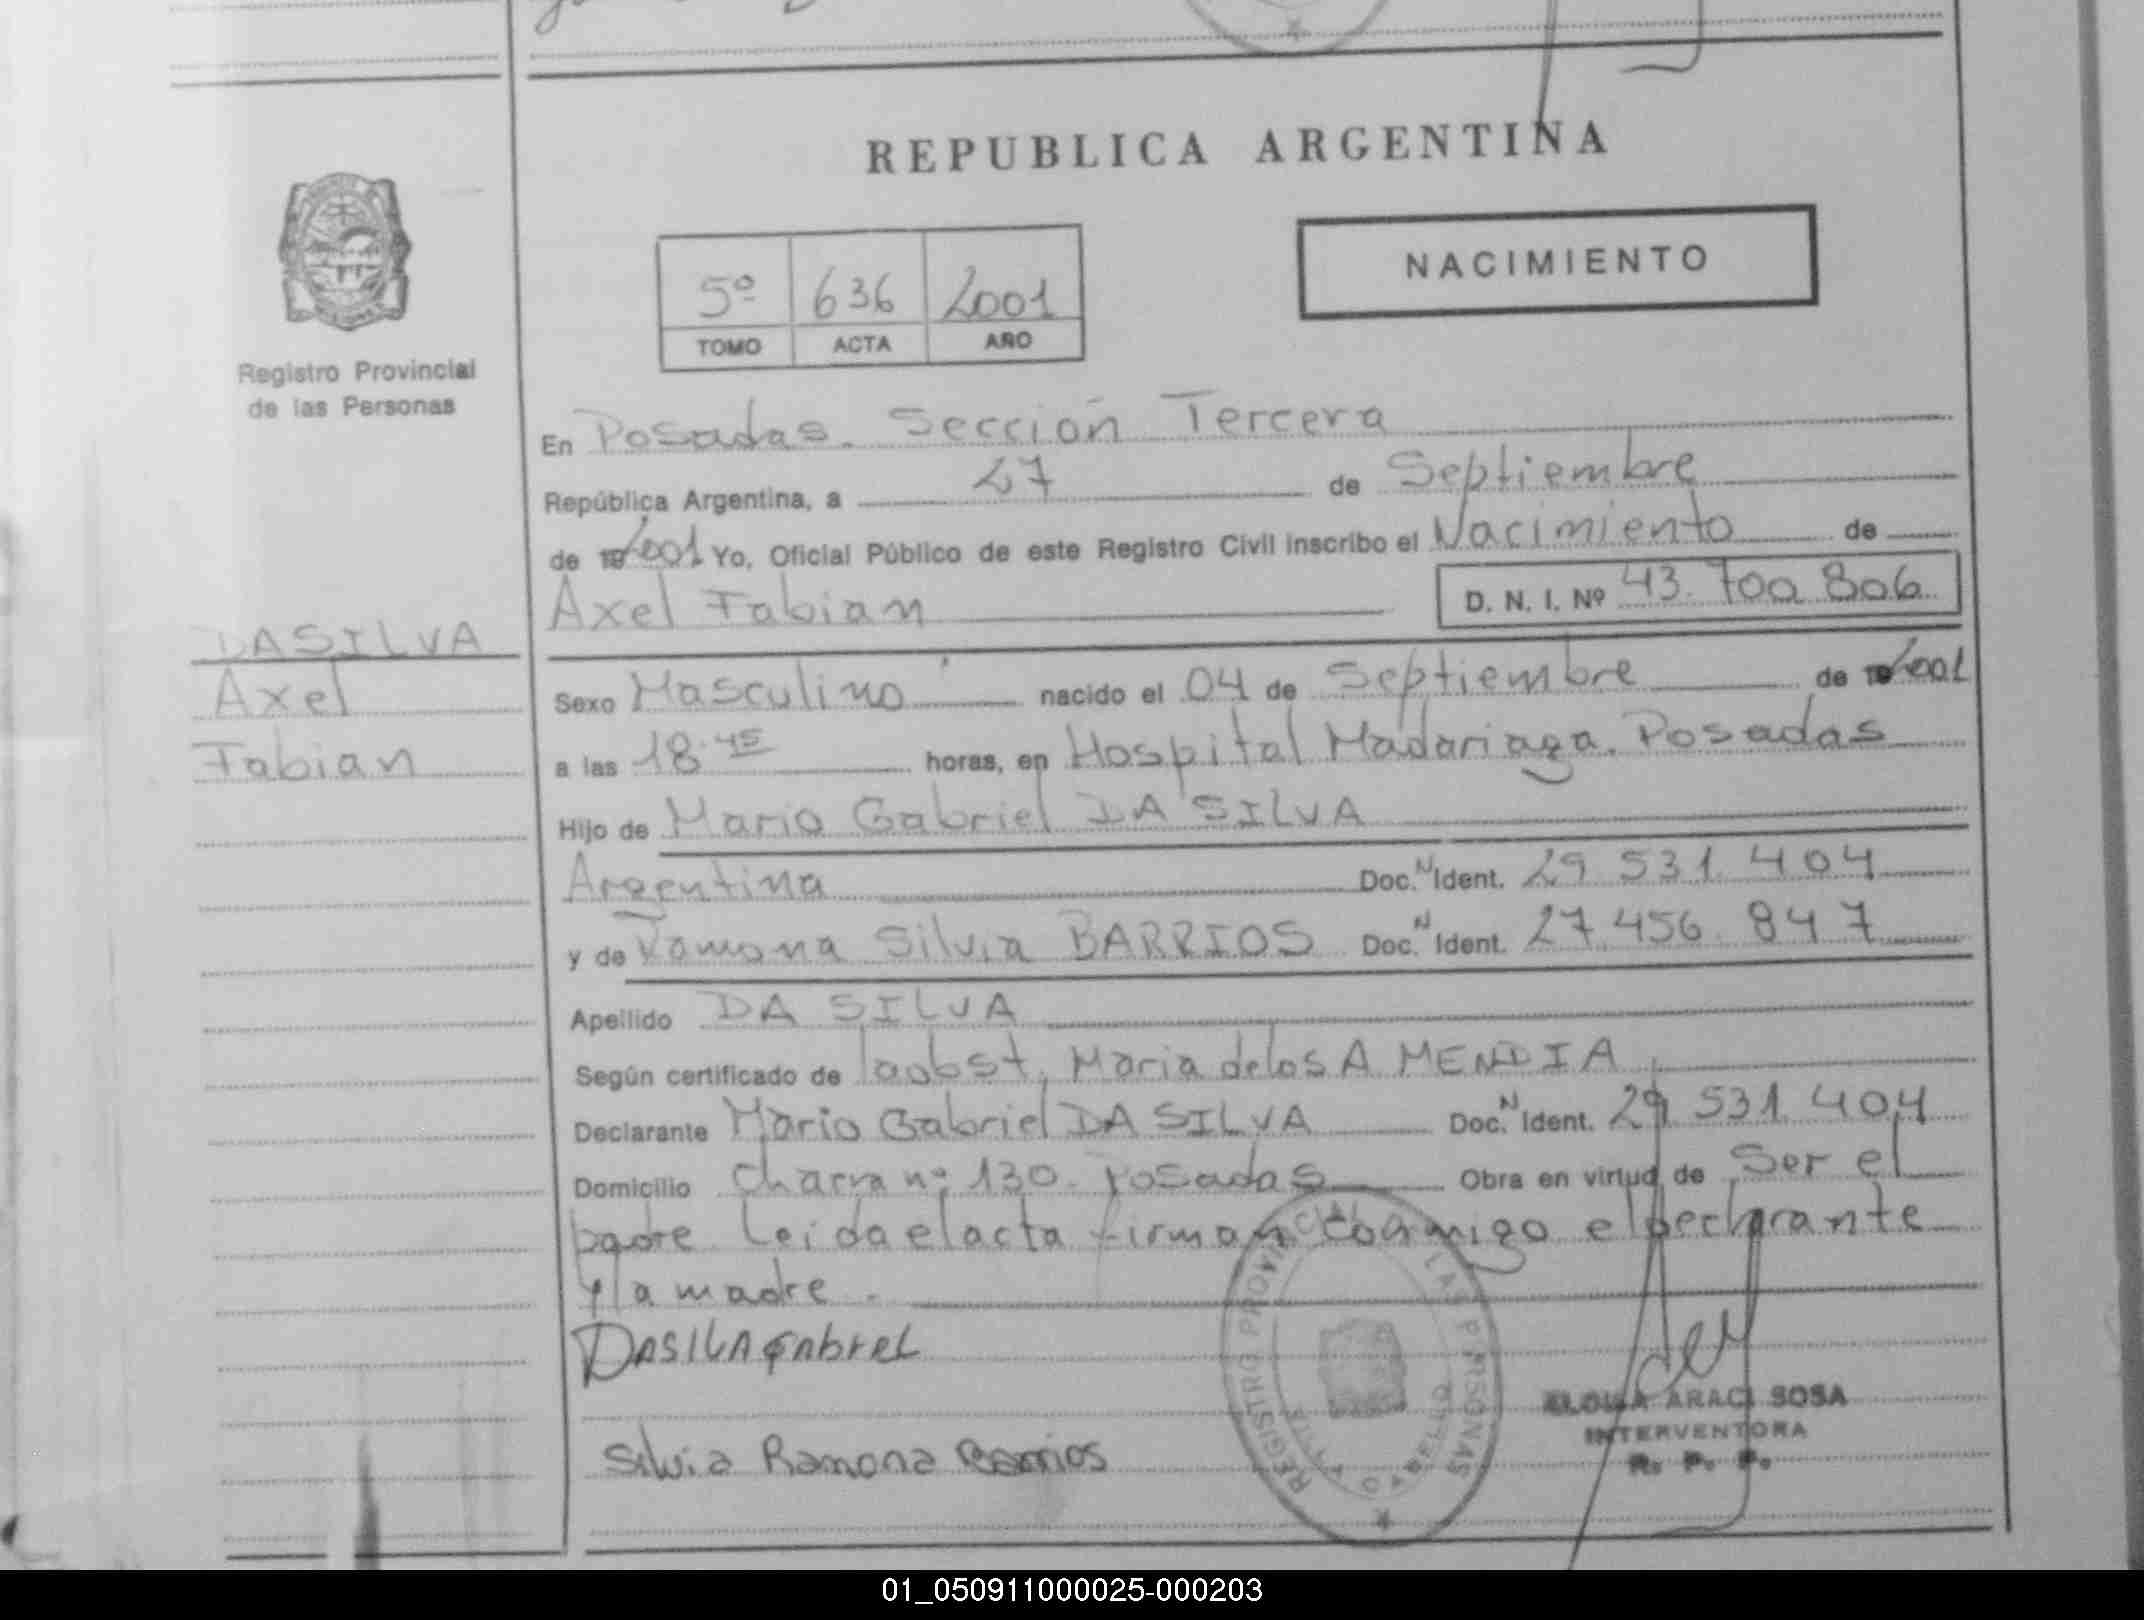 REPUBLICA ARGENTINA
NACIMIENTO
5º 636 2001
TOMO ACTA AÑO
Registro Provincial
de las Personas
En Posadas. Sección Tercera
República Argentina, a 27 de Septiembre
de 2001 Yo, Oficial Público de este Registro Civil inscribo el Nacimiento de
Axel Fabian D. N. I. Nº 43.700.806
DASILVA
Axel
Fabian
Sexo Masculino nacido el 04 de Septiembre de 2001
a las 18.45 horas, en Hospital Madariaga. Posadas
Hijo de Mario Gabriel DA SILVA
Argentina Doc. N Ident. 29.531.404
y de Ramona Silvia BARRIOS Doc. N Ident. 27.456.847
Apellido DA SILVA
Según certificado de la obst. Maria de los A MENDIA
Declarante Mario Gabriel DA SILVA Doc. N Ident. 29.531.404
Domicilio Chacra nº 130. Posadas Obra en virtud de Ser el
padre Leida el acta firman conmigo el Declarante
y la madre.
DASILVA GABRIEL
Silvia Ramona Barrios
REGISTRO PROVINCIAL LAS PERSONAS
ARACI SOSA
INTERVENTORA
R. P. P.
01_050911000025-000203